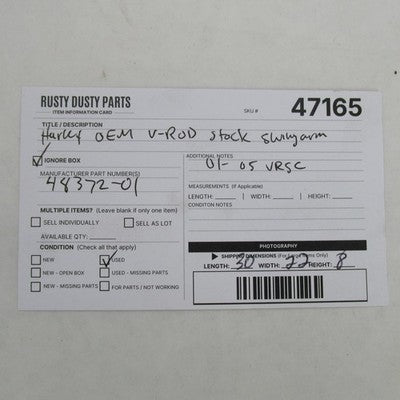 RUSTY DUSTY PARTS
ITEM INFORMATION CARD
SKU # 47165
TITLE / DESCRIPTION
Harley OEM V-ROD stock swingarm
IGNORE BOX
MANUFACTURER PART NUMBER(S)
48372-01
ADDITIONAL NOTES
01-05 VRSC
MEASUREMENTS (If Applicable)
LENGTH: | WIDTH: | HEIGHT:
CONDITON NOTES
MULTIPLE ITEMS? (Leave blank if only one item)
SELL INDIVIDUALLY SELL AS LOT
AVAILABLE QTY:
CONDITION (Check all that apply)
NEW USED
NEW - OPEN BOX USED - MISSING PARTS
NEW - MISSING PARTS FOR PARTS / NOT WORKING
PHOTOGRAPHY
SHIPPING DIMENSIONS (For Large Items Only)
LENGTH: 30 WIDTH: 22 HEIGHT: 8